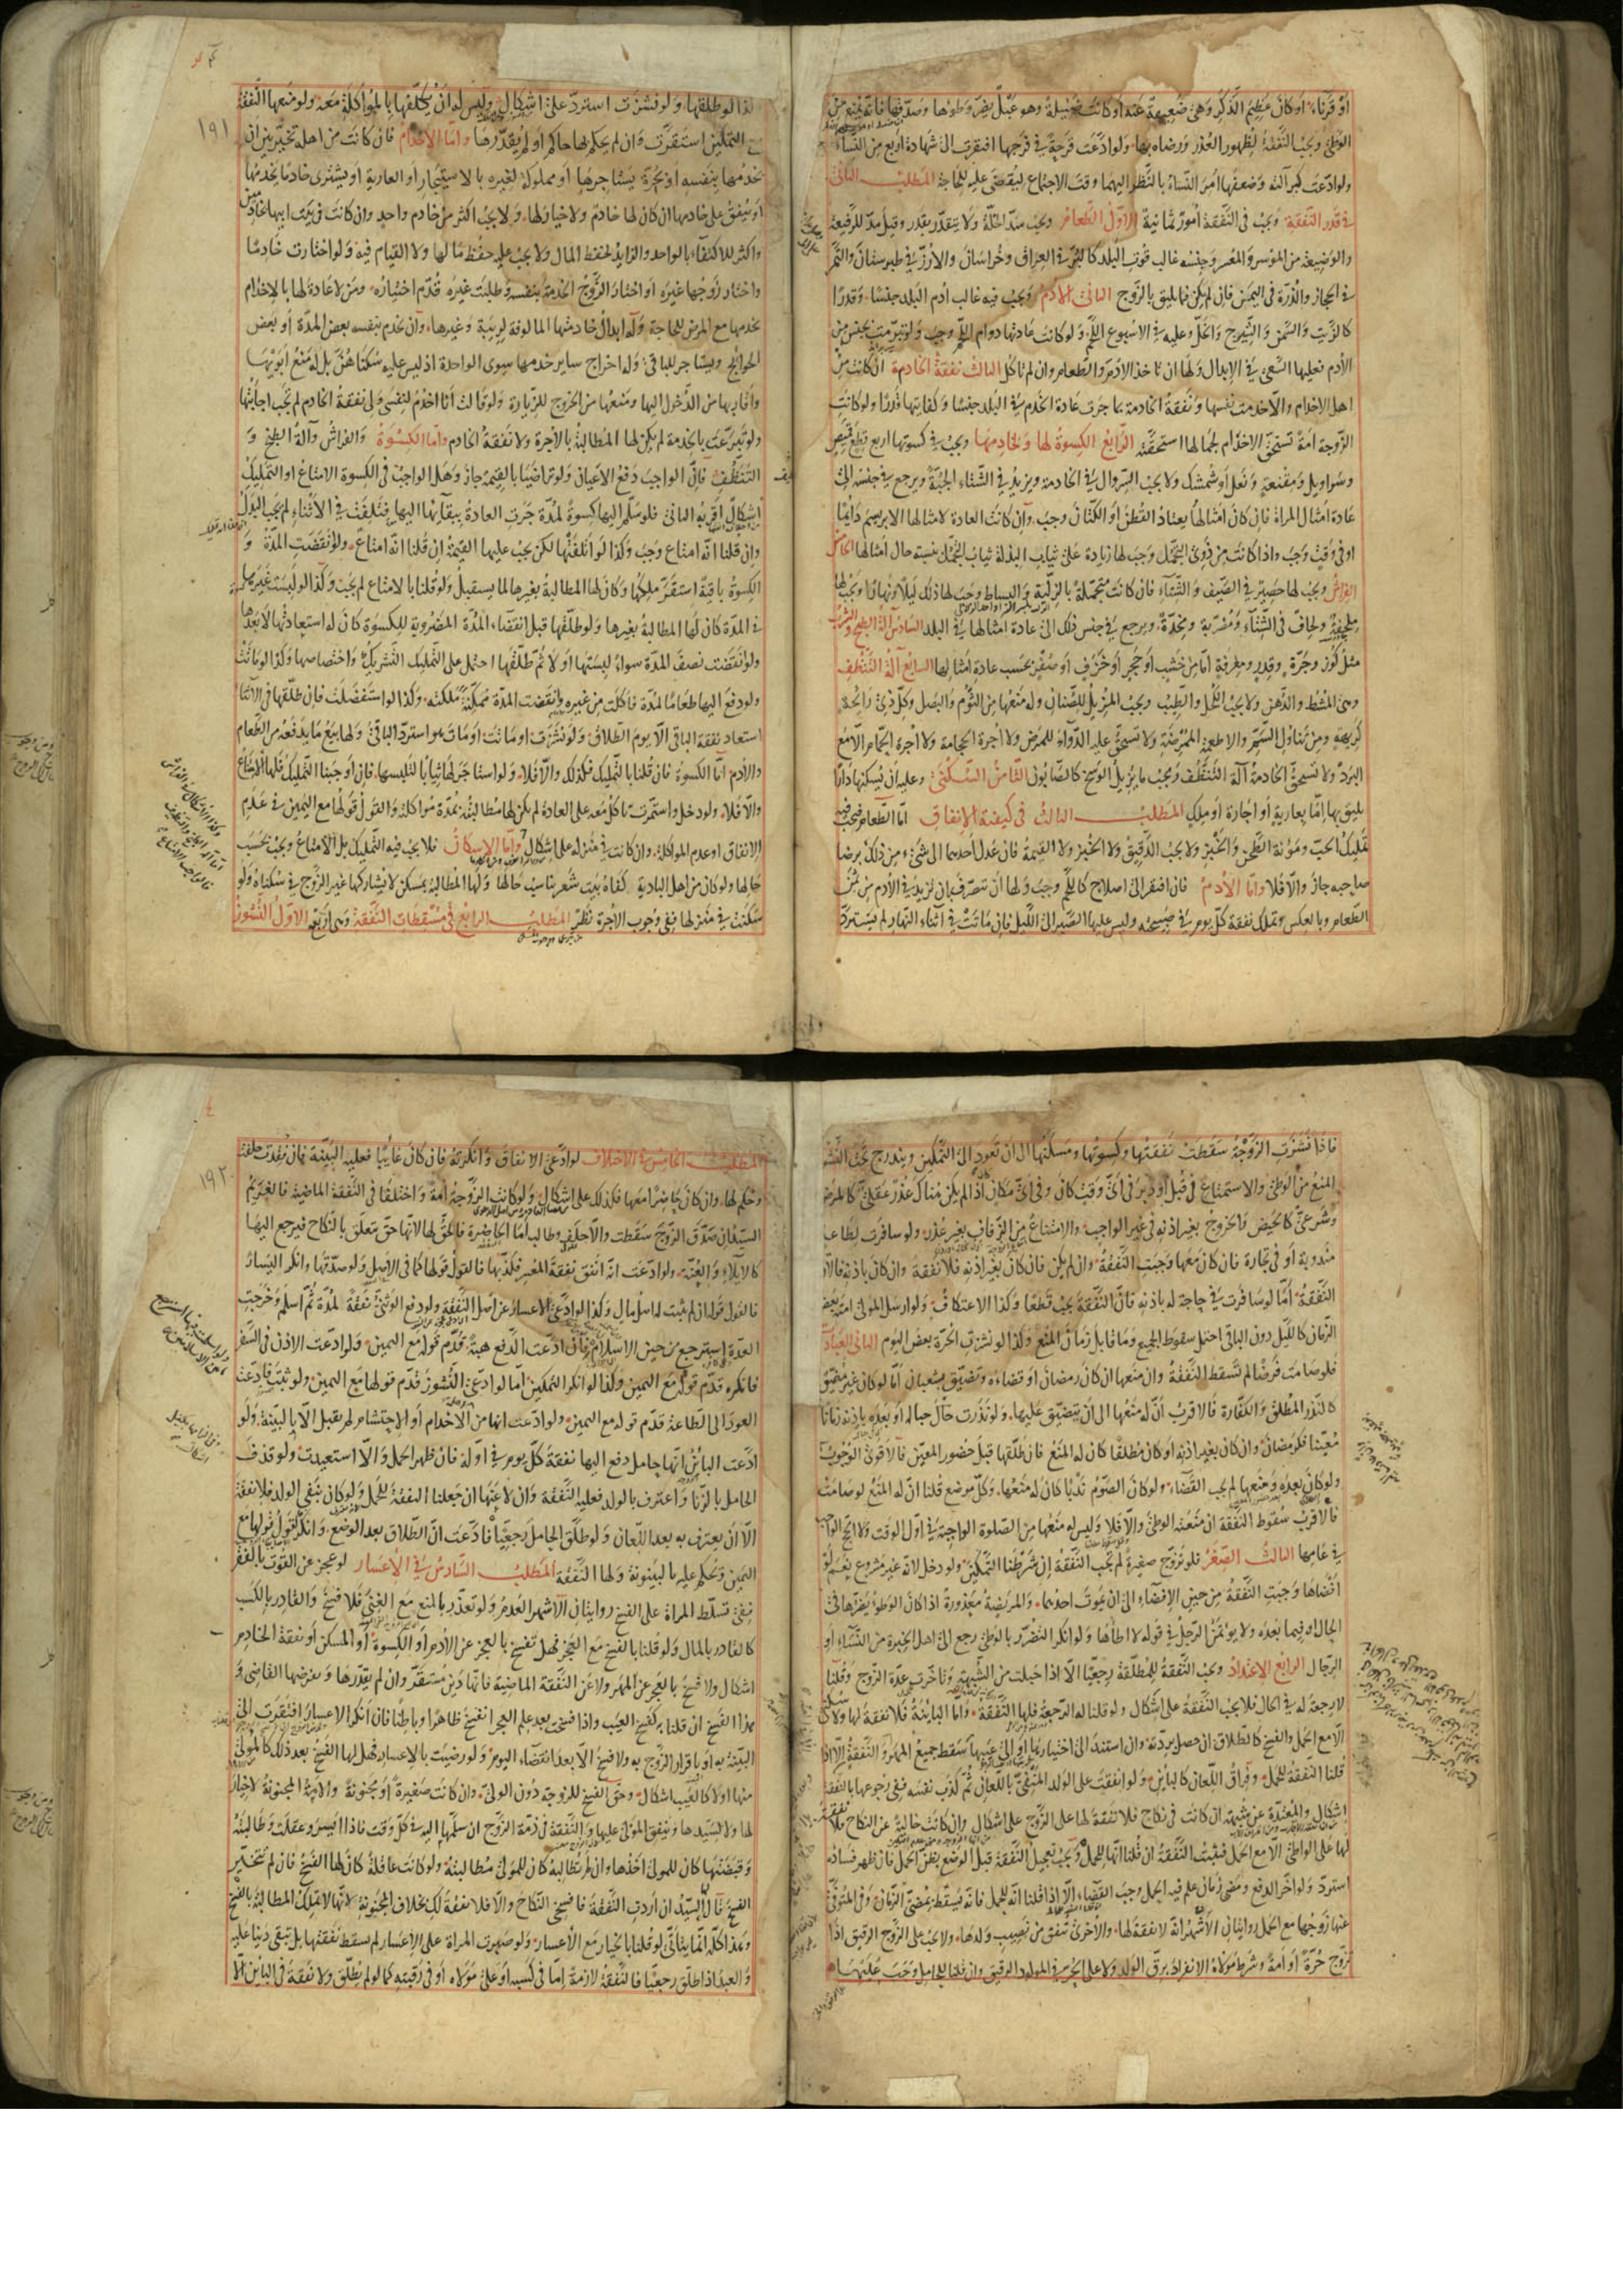 أو قرناء أو كان عظيم الذكر وهي ضعيفة عنه أو كانت ضئيلة وهو عبل يضر وطؤها وصدقها فإنه يمنع من
الوطئ وتجب النفقة لظهور العذر ورضاه بها ولو ادعت قرحة في فرجها افتقرت إلى شهادة أربع من النساء
ولو ادعت كبر آلته وضعفها أمر النساء بالنظر إليهما وقت الاجتماع ليقضى عليه للحاجة المطلب الثاني
في قدر النفقة وتجب في النفقة أمور ثمانية الأول الطعام ويجب سد الخلة ولا يتقدر بقدر وقيل مد للرفيعة
والوضيعة من الموسر والمعسر وجنسه غالب قوت البلد كالبر في العراق وخراسان والأرز في طبرستان والتمر
في الحجاز والذرة في اليمن فإن لم يكن فما يليق بالزوج الثاني الأدم ويجب فيه غالب أدم البلد جنسا وقدرا
كالزيت والسمن والشيرج والخل وعليه في الأسبوع اللحم ولو كانت عادتها دوام اللحم وجب ولو تبرمت بجنس من
الأدم فعليها السعي في الإبدال ولها أن تأخذ الأدم والطعام وإن لم تأكل الثالث نفقة الخادمة إن كانت من
أهل الإخدام وإلا خدمت نفسها ونفقة الخادمة بما جرت عادة الخدم في البلد جنسا وكفايتها قدرا ولو كانت
الزوجة أمة تستحق الإخدام لجمالها استحقته الرابع الكسوة لها ولخادمها ويجب في كسوتها أربع قطع قميص
وسراويل ومقنعة ونعل أو شمشك ولا يجب السروال في الخادمة ويزيد في الشتاء الجبة ويرجع في جنسه إلى
عادة أمثال المرأة فإن كان أمثالها يعتاد القطن أو الكتان وجب وإن كانت العادة لأمثالها الإبريسم دائما
أو في وقت وجب وإذا كانت من ذوي التجمل وجب لها زيادة على ثياب البذلة ثياب التجمل بنسبة حال أمثالها الخامس
الفراش ويجب لها حصير في الصيف والشتاء فإن كانت متجملة بالزلية والبساط وجب لها ذلك ليلا ونهارا ويجب لها
ملحفة ولحاف في الشتاء ومضربة ومخدة ويرجع في جنس ذلك إلى عادة أمثالها في البلد السادس آلة الطبخ والشرب
مثل كوز وجرة وقدر ومغرفة إما من خشب أو حجر أو خزف أو صفر بحسب عادة أمثالها السابع آلة التنظيف
وهي المشط والدهن ولا يجب الكحل والطيب ويجب المزيل للصنان وله منعها من الثوم والبصل وكل ذي رائحة
كريهة ومن تناول السم والأطعمة الممرضة ولا تستحق عليه الدواء للمرض ولا أجرة الحجامة ولا أجرة الحمام إلا مع
البرد ولا تستحق الخادمة آلة التنظف ويجب ما يزيل الوسخ كالصابون الثامن السكنى وعليه أن يسكنها دارا
يليق بها إما بعارية أو إجارة أو ملك المطلب الثالث في كيفية الإنفاق أما الطعام فيجب فيه
تمليك الحب ومؤنة الطحن والخبز ولا يجب الدقيق ولا الخبز ولا القيمة فإن عدل أحدهما إلى شيء من ذلك برضا
صاحبه جاز وإلا فلا وأما الأدم فإن افتقر إلى إصلاح كاللحم وجب ولها أن تتصرف بأن تزيد في الأدم من ثمن
الطعام وبالعكس وتملك نفقة كل يوم في صبيحته وليس عليها الصبر إلى الليل فإن ماتت في أثناء النهار لم يسترد
١٩١
كذا لو طلقها ولو نشزت استرد على إشكال وليس له أن يكلفها بالمؤاكلة معه ولو منعها النفقة
مع التمكين استقرت وإن لم يحكم لها حاكم أو لم يقدرها وأما الإخدام فإن كانت من أهله تخير بين أن
يخدمها بنفسه أو بحرة يستأجرها أو مملوكة لغيره بالاستيجار أو العارية أو يشتري خادما يخدمها
أو ينفق على خادمها إن كان لها خادم ولا خيار لها ولا يجب أكثر من خادم واحد وإن كانت في بيت أبيها خادمين
وأكثر للاكتفاء بالواحد والزايد لحفظ المال ولا يجب عليه حفظ مالها ولا القيام فيه ولو اختارت خادما
واختار زوجها غيره أو اختار الزوج الخدمة بنفسه وطلبت غيره قدم اختياره ومن لا عادة لها بالإخدام
يخدمها مع المرض للحاجة وله إبدال خادمتها المألوفة لريبة وغيرها وأن يخدم بنفسه بعض المدة أو بعض
الحوائج ويستأجر للباقي وله إخراج ساير خدمها سوى الواحدة إذ ليس عليه سكناهن بل له منع أبويها
وأقاربها من الدخول إليها ومنعها من الخروج للزيارة ولو قالت أنا أخدم لنفسي ولي نفقة الخادم لم تجب إجابتها
ولو تبرعت بالخدمة لم يكن لها المطالبة بالأجرة ولا نفقة الخادم وأما الكسوة والفراش وآلة الطبخ و
التنظيف فإن الواجب دفع الأعيان ولو تراضيا بالقيمة جاز وهل الواجب في الكسوة الإمتاع أو التمليك
إشكال أقربه الثاني فلو سلم إليها كسوة لمدة جرت العادة ببقائها إليها فتلفت في الأثناء لم يجب البدل
وإن قلنا أنه إمتاع وجب وكذا لو أتلفتها لكن يجب عليها القيمة إن قلنا أنه إمتاع ولو انقضت المدة و
الكسوة باقية استقر ملكها وكان لها المطالبة بغيرها لما يستقبل ولو قلنا بالإمتاع لم يجب وكذا لو لبست غيرها
في المدة كان لها المطالبة بغيرها ولو طلقها قبل انقضاء المدة المضروبة للكسوة كان له استعادتها إلا بعدها
ولو انقضت نصف المدة سواء لبستها أو لا ثم طلقها احتمل على التمليك التشريك واختصاصها وكذا لو ماتت
ولو دفع إليها طعاما لمدة فأكلت من غيره وانقضت المدة ممكنة ملكته وكذا لو استفضلت فإن طلقها في الأثناء
استعاد نفقة الباقي إلا يوم الطلاق ولو نشزت أو ماتت أو مات هو استرد الباقي ولها بيع ما يدفعه من الطعام
والأدم أما الكسوة فإن قلنا بالتمليك فكذلك وإلا فلا ولو استأجر لها ثيابا لتلبسها فإن أوجبنا التمليك فلها الامتناع
وإلا فلا ولو دخل واستمرت تأكل معه على العادة لم يكن لها مطالبته بمدة مؤاكلته والقول قولها مع اليمين في عدم
الإنفاق أو عدم المؤاكلة وإن كانت في منزله على إشكال وأما الإسكان فلا يجب فيه التمليك بل الإمتاع ويجب بحسب
حالها ولو كان من أهل البادية كفاه بيت شعر يناسب حالها ولها المطالبة بمسكن لا يشاركها غير الزوج في سكناه ولو
سكنت في منزلها ففي وجوب الأجرة نظر المطلب الرابع في مسقطات النفقة وهي أربعة الأول النشوز
فإذا نشزت الزوجة سقطت نفقتها وكسوتها ومسكنها إلى أن تعود إلى التمكين ويندرج تحت النشوز
المنع من الوطئ والاستمتاع في قبل أو دبر في أي وقت كان وفي أي مكان إذا لم يكن هناك عذر عقلي كالمرض
وشرعي كالحيض والخروج بغير إذنه في غير الواجب والامتناع من الزفاف بغير عذر ولو سافرت لطاعة
مندوبة أو في تجارة فإن كان معها وجبت النفقة وإن لم يكن فإن كان بغير إذنه فلا نفقة وإن كان بإذنه فالأقرب
النفقة أما لو سافرت في حاجة له بإذنه فإن النفقة يجب قطعا وكذا الاعتكاف ولو أرسل المولى أمته بعض
الزمان كالليل دون الباقي احتمل سقوط الجميع وما قابل زمان المنع وكذا لو نشزت الحرة بعض اليوم الثاني العبادات
فلو صامت فرضا لم تسقط النفقة وإن منعها إن كان رمضان أو قضاءه وتضيق بشعبان أما لو كان غير مضيق
كالنذر المطلق والكفارة فالأقرب أن له منعها إلى أن يتضيق عليها ولو نذرت حال حباله أو بعده بإذنه زمانا
معينا فكرمضان وإن كان بغير إذنه أو كان مطلقا كان له المنع فإن طلقها قبل حضور المعين فالأقوى الوجوب
ولو كان بعده ومنعها لم يجب القضاء ولو كان الصوم ندبا كان له منعها وكل موضع قلنا أن له المنع لو صامت
فالأقرب سقوط النفقة إن منعته الوطئ وإلا فلا وليس له منعها من الصلوة الواجبة في أول الوقت ولا الحج الواجب
في عامها الثالث الصغر فلو تزوج صغيرة لم تجب النفقة إن شرطنا التمكين ولو دخل لأنه غير مشروع نعم لو
أفضاها وجبت النفقة من حين الإفضاء إلى أن يموت أحدهما والمريضة معذورة إذا كان الوطؤ يضرها في
الحال أو فيما بعده ولا يؤتمن الرجل في قوله لا أطأها ولو أنكر التضرر بالوطئ رجع إلى أهل الخبرة من النساء أو
الرجال الرابع الاعتداد وتجب النفقة للمطلقة رجعيا إلا إذا حبلت من الشبهة وتأخرت عدة الزوج وقلنا
لا رجعة له في الحال فلا يجب النفقة على إشكال ولو قلنا له الرجعة فلها النفقة وأما البائنة فلا نفقة لها ولا سكنى
إلا مع الحمل والفسخ كالطلاق إن حصل بردته وإن استند إلى اختيارها أو إلى عيبها سقط جميع المهر والنفقة إلا إذا
قلنا النفقة للحمل وفراق اللعان كالباين ولو أنفقت على الولد المنفي باللعان ثم كذب نفسه ففي رجوعها بالنفقة
إشكال والمعتدة عن شبهة إن كانت في نكاح فلا نفقة لها على الزوج على إشكال وإن كانت خالية عن النكاح فلا نفقة
لها على الواطئ إلا مع الحمل فتثبت النفقة إن قلنا أنها للحمل ويجب تعجيل النفقة قبل الوضع بظن الحمل فإن ظهر فساده
استرد ولو أخر الدفع ومضى زمان علم فيه الحمل وجب القضاء إلا إذا قلنا أنه للحمل فإنه يسقط بمضي الزمان وفي المتوفى
عنها زوجها مع الحمل روايتان الأشهر أنه لا نفقة لها والأخرى تنفق من نصيب ولدها ولا يجب على الزوج الرقيق إذا
تزوج حرة أو أمة وشرط مولاه الانفراد برق الولد ولا على الحر في المولود الرقيق وإن قلنا للحامل وجب عليهما
١٩٢
المطلب الخامس في الاختلاف لو ادعى الإنفاق وأنكرته فإن كان غايبا فعليه البينة فإن فقدت حلفت
وحكم لها وإن كان حاضرا معها فكذلك على إشكال ولو كانت الزوجة أمة واختلفا في النفقة الماضية فالغريم
السيد فإن صدق الزوج سقطت وإلا حلف وطالب أما الحاضرة فالحق لها لأنها حق يتعلق بالنكاح فيرجع إليها
كالإيلاء والعنة ولو ادعت أنه أنفق نفقة المعسر فكذبها فالقول قولها كما في الأصل ولو صدقها وأنكر اليسار
فالقول قوله إن لم يثبت له أصل مال وكذا لو ادعى الإعسار عن أصل النفقة ولو دفع الوثني نفقة لمدة ثم أسلم وخرجت
العدة استرجع من حين الإسلام فإن ادعت الدفع هبة قدم قوله مع اليمين ولو ادعت الإذن في السفر
فأنكره قدم قوله مع اليمين وكذا لو أنكر التمكين أما لو ادعى النشوز قدم قولها مع اليمين ولو ثبت فادعت
العود إلى الطاعة قدم قوله مع اليمين ولو ادعت أنها من الإخدام أو الاحتشام لم يقبل إلا بالبينة ولو
ادعت البائن أنها حامل دفع إليها نفقة كل يوم في أوله فإن ظهر الحمل وإلا استعيدت ولو قذف
الحامل بالزنا واعترف بالولد فعليه النفقة وإن لاعنها إن جعلنا النفقة للحمل ولو كان بنفي الولد فلا نفقة
إلا أن يعترف به بعد اللعان ولو طلق الحامل رجعيا فادعت أن الطلاق بعد الوضع وأنكر فالقول قولها مع
اليمين ويحكم عليه بالبينونة ولها النفقة المطلب السادس في الإعسار لو عجز عن القوت بالفقر
ففي تسلط المرأة على الفسخ روايتان الأشهر العدم ولو تعذر بالمنع مع الغنى فلا فسخ والقادر بالكسب
كالقادر بالمال ولو قلنا بالفسخ مع العجز فهل تفسخ بالعجز عن الأدم أو الكسوة أو المسكن أو نفقة الخادم
إشكال ولا فسخ بالعجز عن المهر ولا عن النفقة الماضية فإنها دين مستقر وإن لم يقدرها ويفرضها القاضي و
هذا الفسخ إن قلنا به كفسخ العيب وإذا فسخت بعد علم العجز انفسخ ظاهرا وباطنا فإن أنكر الإعسار افتقرت إلى
البينة به أو بإقرار الزوج به ولا فسخ إلا بعد انقضاء اليوم ولو رضيت بالإعسار فهل لها الفسخ بعد ذلك كالمولى
منها أو لا كالعيب إشكال وحق الفسخ للزوجة دون الولي وإن كانت صغيرة أو مجنونة والأمة المجنونة لا خيار
لها ولا لسيدها وينفق المولى عليها والنفقة في ذمة الزوج إن سلمها إليه في كل وقت فإذا أيسر وعقلت وطالبته
وقبضتها كان للمولى أخذها وإن لم تطالبه كان للمولى مطالبته ولو كانت عاقلة كان لها الفسخ فإن لم تتخير
الفسخ قال السيد إن أردت النفقة فافسخي النكاح وإلا فلا نفقة لك بخلاف المجنونة لأنها لا تملك المطالبة بالفسخ
وهذا كله إنما يتأتى لو قلنا بالخيار مع الإعسار ولو صبرت المرأة على الإعسار لم تسقط نفقتها بل تبقى دينا عليه
والعبد إذا طلق رجعيا فالنفقة لازمة إما في كسبه أو على مولاه أو في رقبته كما لو لم يطلق ولا نفقة في البائن إلا